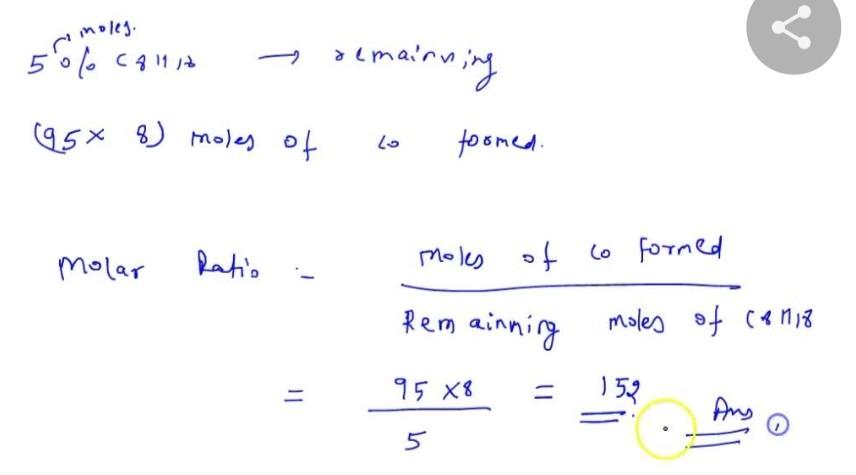 moles.
5% C8H18 → remainning
(95 × 8) moles of co formed.
Molar Ratio :- moles of co formed
Remainning moles of C8H18
= 95 × 8 = 152. Ans
5